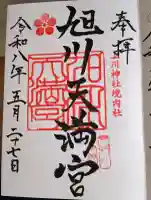 奉拝
川神社境内社
旭川天満宮
令和八年五月二十七日